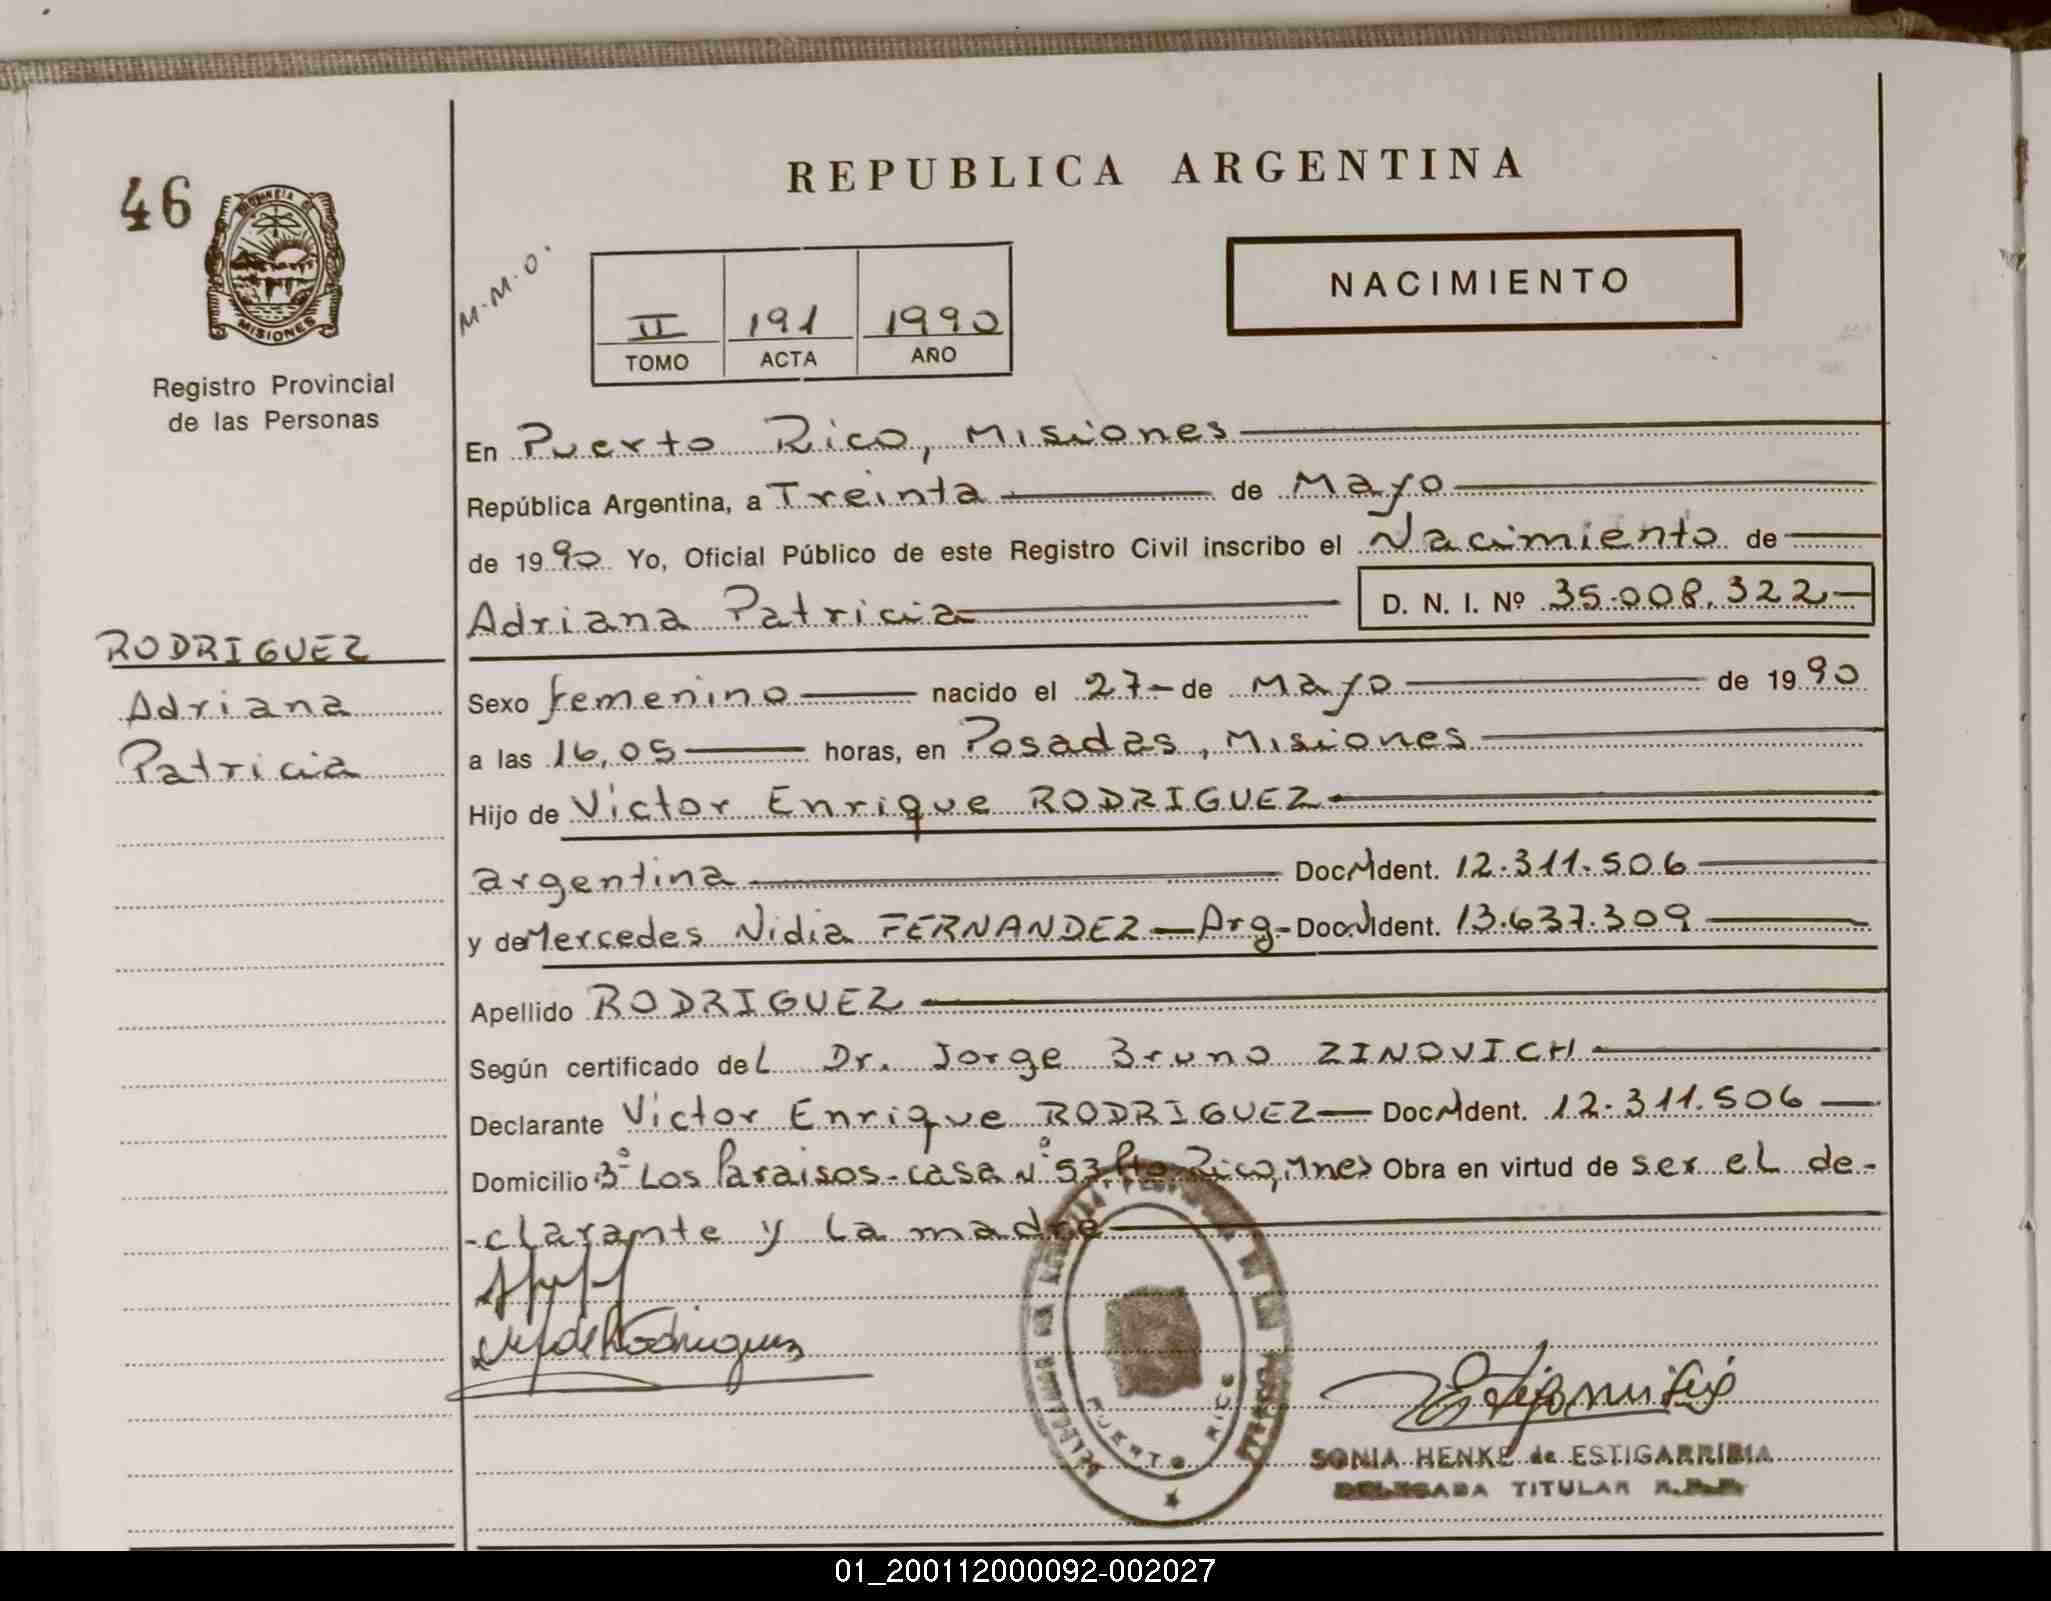 REPUBLICA ARGENTINA
46
PROVINCIA DE
MISIONES
Registro Provincial
de las Personas
M.M.O.
II 191 1990
TOMO ACTA AÑO
NACIMIENTO
En Puerto Rico, Misiones
República Argentina, a Treinta de Mayo
de 1990 Yo, Oficial Público de este Registro Civil inscribo el Nacimiento de
Adriana Patricia D. N. I. Nº 35.008.322
RODRIGUEZ
Adriana
Patricia
Sexo femenino nacido el 27 de Mayo de 1990
a las 16,05 horas, en Posadas, Misiones
Hijo de Victor Enrique RODRIGUEZ
argentina Doc. Ident. 12.311.506
y de Mercedes Nidia FERNANDEZ - Arg- Doc. Ident. 13.637.309
Apellido RODRIGUEZ
Según certificado del Dr. Jorge Bruno ZINOVICH
Declarante Victor Enrique RODRIGUEZ Doc. Ident. 12.311.506
Domicilio Bº Los Paraisos-casa Nº 53, Pto Rico, Mnes Obra en virtud de ser el de-
-clarante y la madre
de Rodriguez
PUERTO RICO
SONIA HENKE de ESTIGARRIBIA
DELEGADA TITULAR R.P.P.
01_200112000092-002027